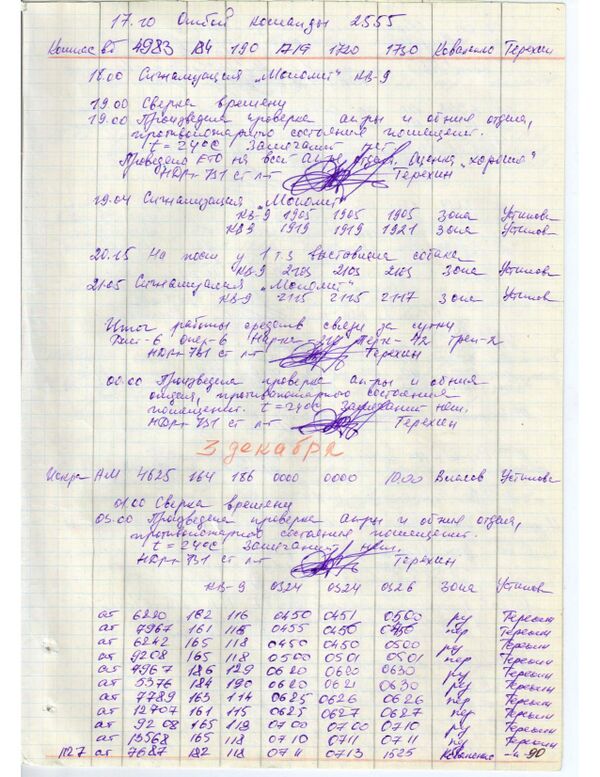 17.10 Отбой команды 2555
4983 184 190 1719 1720 1730 Коваленко Терехин
18.00 Сигнализация „Монолит" КВ-9
19.00 Сверка времени
19.00 Произведена проверка апры и общия отдел,
противопожарного состояния помещений.
t = 24°С Замечаний нет
Проведено ЕТО на всей апре отдел. Оценка „хорошо"
НДР-731 ст л-т Терехин
19.04 Сигнализация „Монолит"
КВ-9 1905 1905 1905 Зона Устинов
КВ9 1919 1919 1921 Зона Устинов
20.15 На пост у 1 т.з выставлена собака
КВ-9 2103 2103 2103 Зона Устинов
21.05 Сигнализация „Монолит"
КВ-9 2115 2115 2117 Зона Устинов
Итог работы средств связи за сутки
опер-6
НДР-731 ст л-т Терехин
00.00 Произведена проверка апры и общия
отдел, противопожарного состояния
помещений. t = 24°С Замечаний нет.
НДР-731 ст л-т Терехин
3 декабря
Искра АМ 4625 164 186 0000 0000 10.00 Власов Устинова
01.00 Сверка времени
03.00 Произведена проверка апры и общия отдел,
противопожарного состояния помещений.
t = 24°С Замечаний нет.
НДР-731 ст л-т Терехин
КВ-9 0324 0324 0326 Зона Устинов
ат 6220 182 116 0450 0451 0500 ру Терехин
ат 7967 161 115 0455 0450 пер Терехин
ат 6242 165 118 0450 0450 0500 ру Терехин
ат 9208 165 118 0500 0501 0501 пер Терехин
ат 4967 186 129 0620 0620 0630 ру Терехин
ат 5376 184 190 0620 0621 0630 ру Терехин
ат 7789 163 114 0625 0626 0626 пер Терехин
ат 12707 161 115 0625 0627 0627 пер Терехин
ат 9208 165 118 0700 0700 0710 ру Терехин
ат 13568 165 118 0710 0711 0711 ру Терехин
1127 ат 7687 182 118 0711 0713 1525 Коваленко